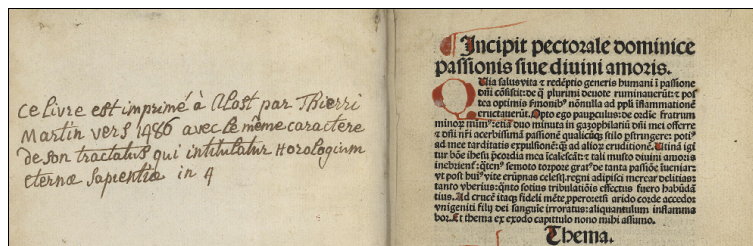 ce Livre est imprimé à Alost par Thierri
Martin vers 1486 avec le même caractere
de son tractatus qui intitulatur Horologium
eternæ Sapientiæ in 4
Incipit pectorale dominice
passionis siue diuini amoris.
Quia salus vita ⁊ redẽptio generis humani ĩ passione
dñi cõsistit: de q̃ plurimi deuote ruminauerũt: ⁊ pos
tea optimis ẽmonibꝰ nõnulla ad ppli ĩflammationẽ
eructauerũt. Opto ego paupculus: de ordĩe fratrum
minoꝝ duo minuta ĩn gazophilariũ dñi mei offerre
⁊ dñi nr̃i acerbissimã passionẽ qualicũqꝫ stilo pstringere: potiꝰ
ad mee tarditatis expulsionẽ: ad alioꝝ eruditionẽ. Utinã igi
tur bõe ihesu p̃cordia mea ĩcalescãt: ⁊ tali musto diuini amoris
inebrient̃: semoto torpore de tanta passiõe
vt post huiꝰ vite erũpnas celesqꝫ regni adipisci mercar delitias:
tanto vberius: q̃nto sotius tribulatiõis effectus fuero habũda
tius. Ad crucẽ itaqꝫ fideli mẽte arido corde accedo:
vnigeniti filij dei sanguĩe irroratus: aliquantulum inflamma
bor. Et thema ex exodo capitulo nono mihi assumo.
Thema.